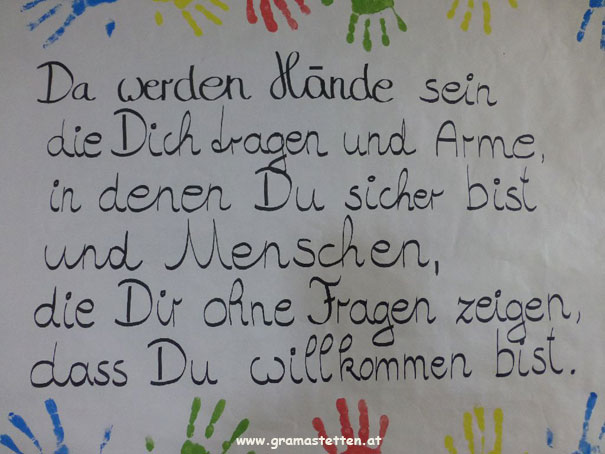 Da werden Hände sein
die Dich tragen und Arme,
in denen Du sicher bist
und Menschen,
die Dir ohne Fragen zeigen,
dass Du willkommen bist.
www.gramastetten.at